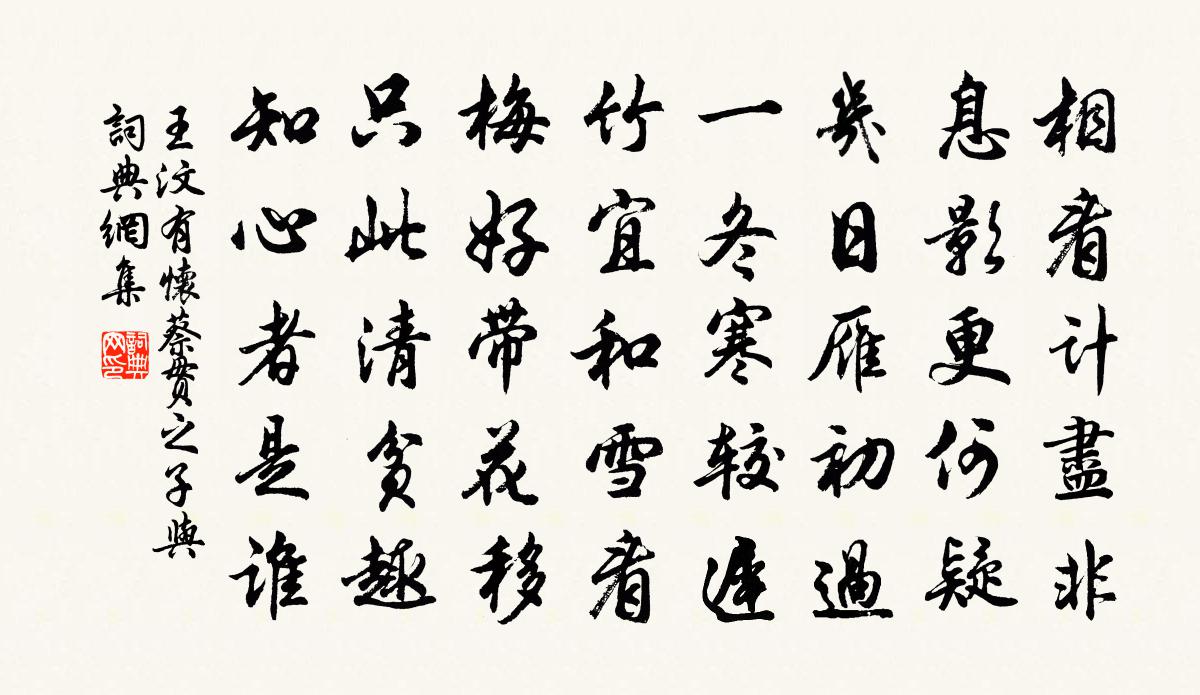 相看計盡非
息影更何疑
幾日雁初過
一冬寒較遲
竹宜和雪看
梅好帶花移
只此清貧趣
知心者是誰
王汶有懷蔡貫之子與
詞典網集
詞典
网印